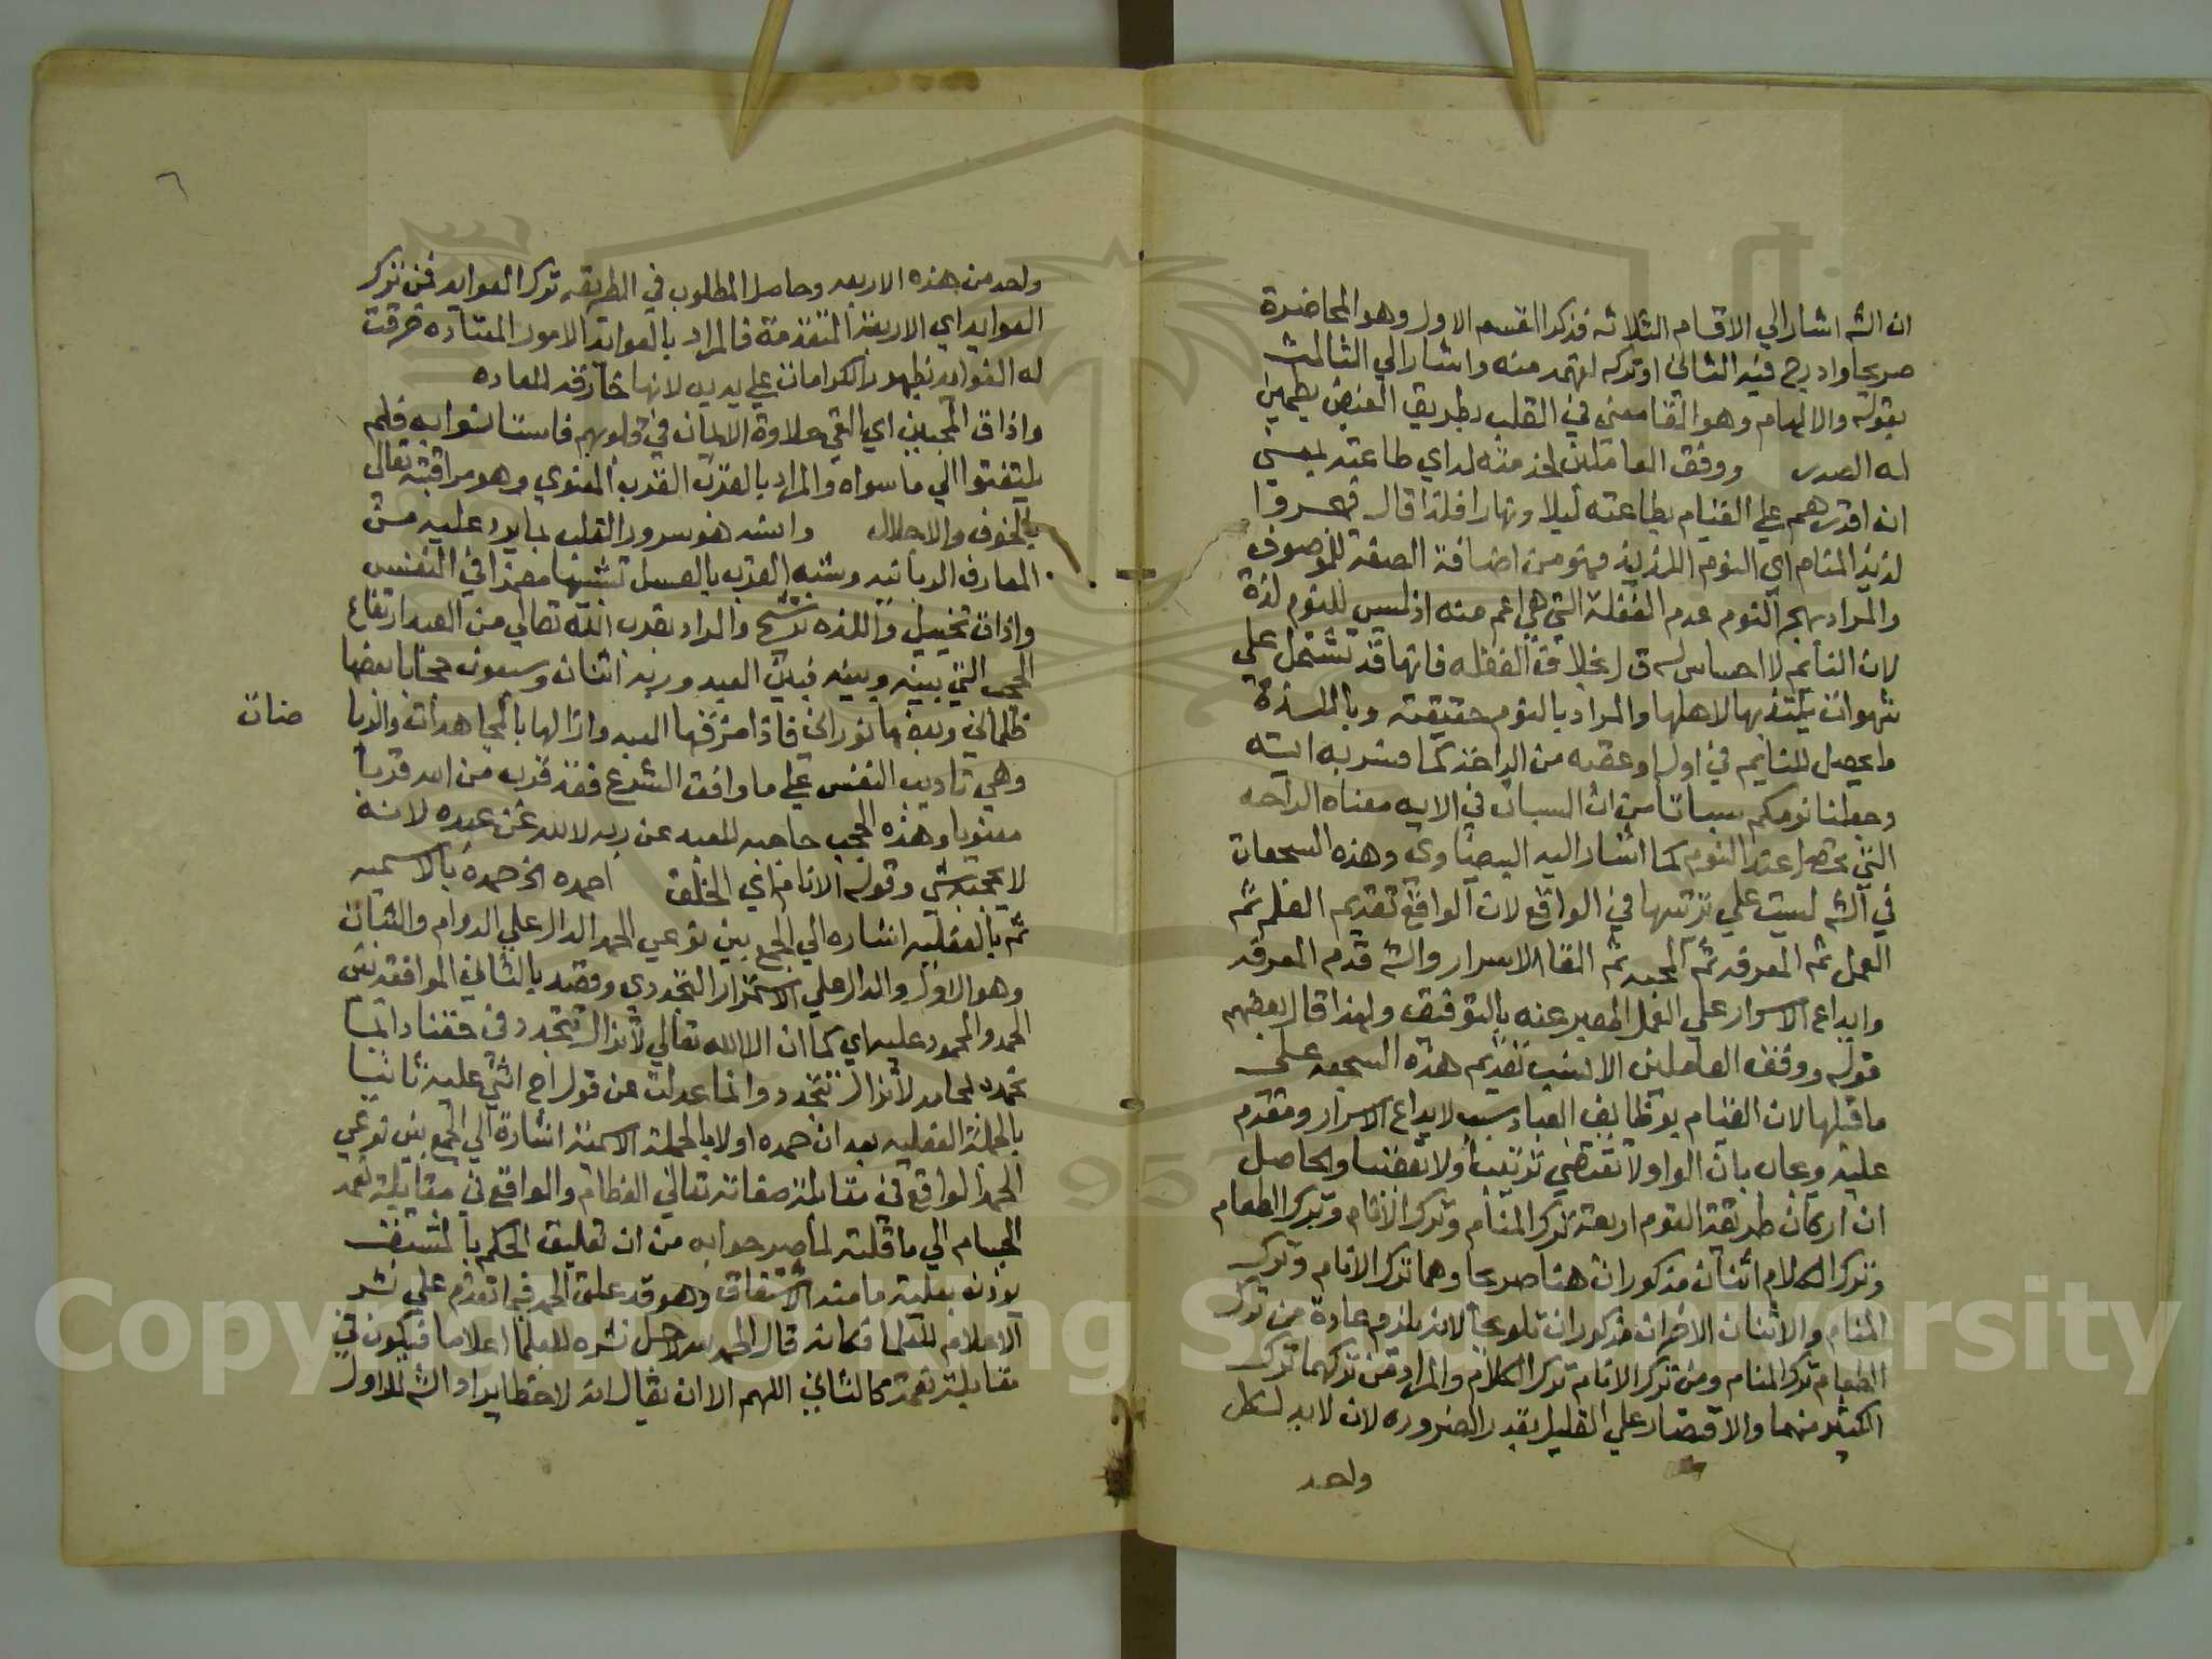 ان الشه اشار الي الاقسام الثلاثه فذكر القسم الاول وهو المحاضرة
صريحا وادرج فيه الثاني او تركه لفهمه منه واشار الي الثالث
بقوله والالهام وهو القا معني في القلب بطريق الفيض يطمين
له الصدر ووفق العاملين لخدمته اي طاعته بمعني
ان اقدرهم علي القيام بطاعته ليلا ونهارا فلذا قال فهجروا
لذيذ المنام اي النوم اللذيذ فهو من اضافة الصفة للموصوف
والمراد بهجر النوم عدم الغفلة التي هي اعم منه اذ ليس للنوم لذة
لان النائم لا احساس له بخلاف الغفله فانها قد تشتمل علي
شهوات يلتذ بها اهلها والمراد بالنوم حقيقته وباللذة
ما يحصل للنايم في اوله او عقبه من الراحة كما فسر به ايته
وجعلنا نومكم سباتا من ان السبات في الايه معناه الراحه
التي تحصل عند النوم كما اشار اليه البيضاوي وهذه السجعات
في الشه ليست علي ترتيبها في الواقع لان الواقع تقديم العلم ثم
العمل ثم المعرفه ثم المحبه ثم القا الاسرار والشه قدم المعرفه
وايداع الاسرار علي العمل المعبر عنه بالتوفيق ولهذا قال بعضهم
قوله ووفق العاملين الانسب تقديم هذه السجعه علي
ما قبلها لان القيام بوظايف العباد سبب لايداع الاسرار ومقدم
عليه ويجاب بان الواو لا تقتضي ترتيبا ولا تعقيبا والحاصل
ان اركان طريقة القوم اربعة ترك المنام وترك الانام وترك الطعام
وترك الكلام اثنان مذكوران هنا صريحا وهما ترك الانام وترك
المنام والاثنان الاخران مذكوران تلويحا لانه يلزم عادة من ترك
الطعام ترك المنام ومن ترك الانام ترك الكلام والمراد من تركهما ترك
الكثير منهما والاقتصار علي القليل بقدر الضروره لان لابد لكل
واحد
٦
واحد من هذه الاربعه وحاصل المطلوب في الطريقه ترك العوايد فمن ترك
العوايد اي الاربعة المتقدمة فالمراد بالعوايد الامور المعتاده خرقت
له العوايد بظهور الكرامات علي يديه لانها خارقه للعاده
واذاق المحبين اي القي حلاوة الايمان في قلوبهم فاستانسوا به فلم
يلتفتوا الي ما سواه والمراد بالقرب القرب المعنوي وهو مراقبته تعالي
بالخوف والاجلال وانسه هو سرور القلب بما يرد عليه من
المعارف الربانيه وشبه القرب بالعسل تشبيها مضمرا في النفس
واذاق تخييل واللذه ترشيح والمراد بقرب الله تعالي من العبد ارتفاع
الحجب التي بينه وبينه فبين العبد وربه اثنان وسبعون حجابا بعضها
ظلماني وبعضها نوراني فاذا خرقها العبد وازالها بالمجاهدات والريا
ضات
وهي تاديب النفس علي ما وافق الشرع فقد قرب من الله قربا
معنويا وهذه الحجب حاجبه للعبد عن ربه لا لله عن عبده لانه
لا يحجبه شي وقوله الانام اي الخلق احمده الخ حمده بالاسميه
ثم بالفعليه اشاره الي الجمع بين نوعي الحمد الدال علي الدوام والثبات
وهو الاول والدال علي الاستمرار التجددي وقصد بالثاني الموافقه بين
الحمد والمحمود عليه اي كما ان الا الله تعالي لا تزال تتجدد في حقنا دائما
نحمده بمحامد لا تزال تتجدد وانما عدلت عن قول اح اثني عليه ثانيا
بالجملة الفعليه بعد ان حمده اولا بالجملة الاسميه اشارة الي الجمع بين نوعي
الحمد الواقع في مقابلة صفاته تعالي العظام والواقع في مقابلة نعمه
الجسام الي ما قلته لما مر جوابه من ان تعليق الحكم بالمشتق
يؤذن بعلية ما منه الاشتقاق وهو قد علق الحمد فيما تقدم علي نشر
الاعلام للعلما فكانه قال الحمد لله لاجل نشره للعلما اعلاما فيكون في
مقابلة نعمة كالثاني اللهم الا ان يقال انه لاحظ ايراد الشه للاول